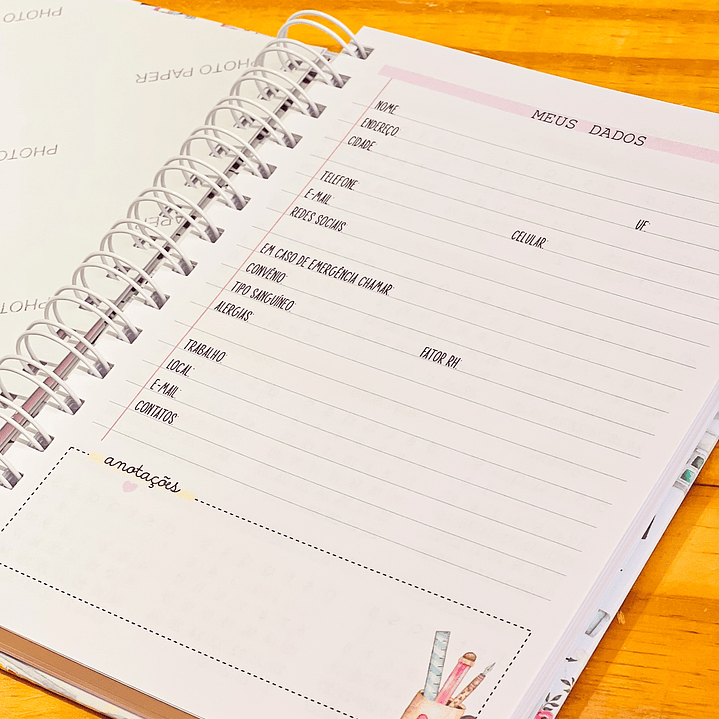 PHOTO
PHOTO PAPER
PHOTO
PHOTO
MEUS DADOS
NOME
ENDEREÇO
CIDADE
UF:
TELEFONE
CELULAR:
E-MAIL
REDES SOCIAIS
EM CASO DE EMERGÊNCIA CHAMAR:
CONVÊNIO:
TIPO SANGUÍNEO:
FATOR RH:
ALERGIAS:
TRABALHO:
LOCAL:
E-MAIL:
CONTATOS:
anotações